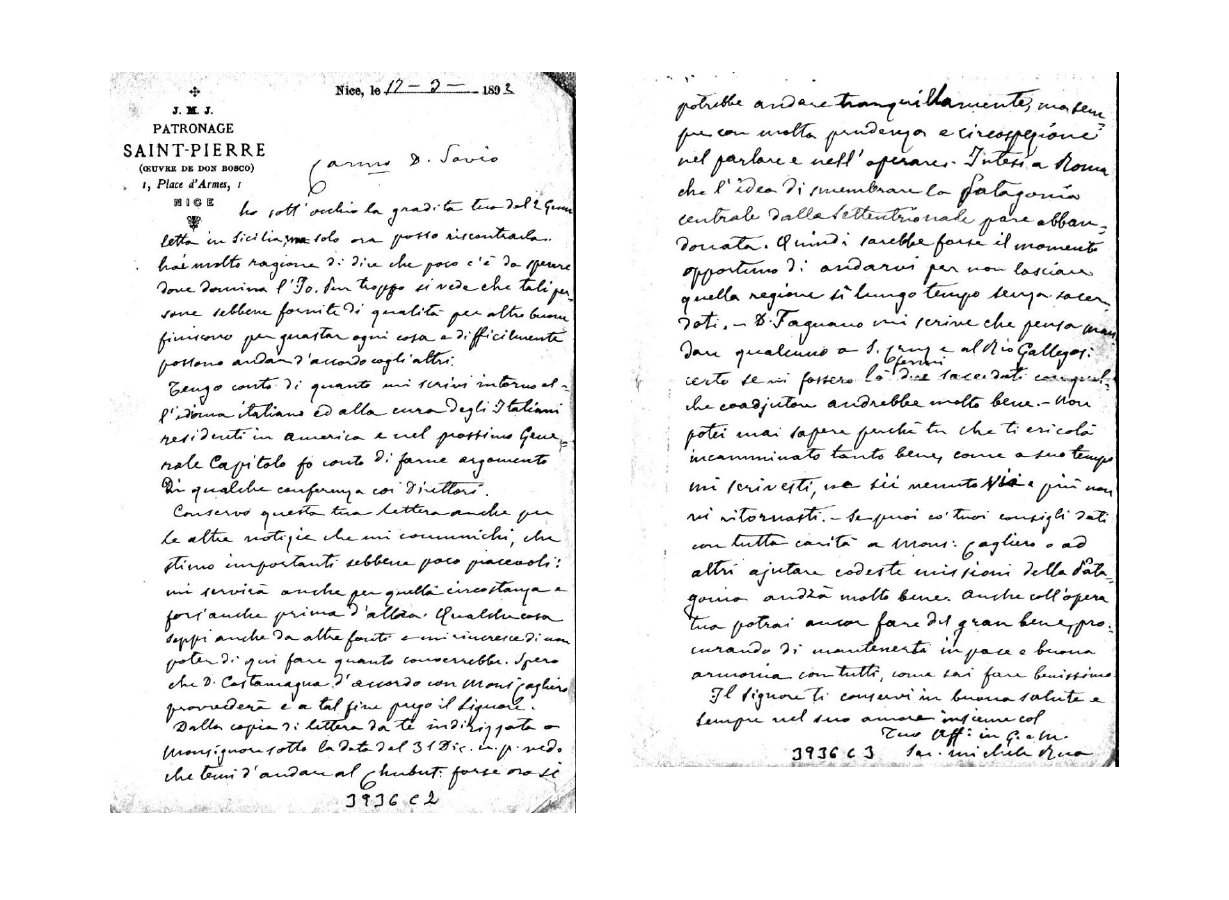 J. M. J.
PATRONAGE
SAINT-PIERRE
(ŒUVRE DE DON BOSCO)
1, Place d'Armes, 1
NICE
Nice, le 17 - 3 - 1892
Carmo D. Savio
ho sott'occhio la gradita tua del 2 Genn
letta in Sicilia, ma solo ora posso riscontrarla.
hai molto ragione di dire che poco c'è da sperare
dove domina l'Io. Pur troppo si vede che tali per-
sone sebbene fornite di qualità per altro buone
finiscono per guastar ogni cosa e difficilmente
possono andar d'accordo cogli altri.
Tengo conto di quanto mi scrivi intorno al-
l'idioma italiano ed alla cura degli Italiani
residenti in America e nel prossimo Gene-
rale Capitolo fo conto di farne argomento
di qualche conferenza coi Direttori.
Conservo questa tua lettera anche per
le altre notizie che mi comunichi, che
stimo importanti sebbene poco piacevoli:
mi servirà anche per quella circostanza e
fors'anche prima d'allora. Qualche cosa
seppi anche da altre fonti e mi rincresce di non
poter di qui fare quanto converrebbe. Spero
che D. Costamagna d'accordo con Monsr Cagliero
provvederà e a tal fine prego il Signore.
Dalla copia di lettera da te indirizzata a
Monsignore sotto la data del 31 Dic. u. p. vedo
che temi d'andare al Chubut: forse ora si
3936 C 2
potrebbe andare tranquillamente, ma sem-
pre con molta prudenza e circospezione
nel parlare e nell'operare. Intesi a Roma
che l'idea di smembrare la Patagonia
centrale dalla settentrionale pare abban-
donata. Quindi sarebbe forse il momento
opportuno di andarvi per non lasciare
quella regione sì lungo tempo senza sacer
doti. - D. Fagnano mi scrive che pensa man
dare qualcuno a S. Cruz e al Rio Gallegos:
certo se vi fossero là due sacerdoti con qual-
che coadjutore andrebbe molto bene. - Non
potei mai sapere perchè tu che ti eri colà
incamminato tanto bene, come a suo tempo
mi scrivesti, ne sii venuto via e più non
vi ritornasti. - Se puoi co' tuoi consigli dati
con tutta carità a Mons: Cagliero o ad
altri ajutare codeste missioni della Pata-
gonia andrà molto bene. Anche coll'opera
tua potrai ancor fare del gran bene, pro-
curando di mantenerti in pace e buona
armonia con tutti, come sai fare benissimo
Il Signore ti conservi in buona salute e
sempre nel suo amore insieme col
Tuo Aff: in G. e M.
Sac. Michele Rua
3936 C 3